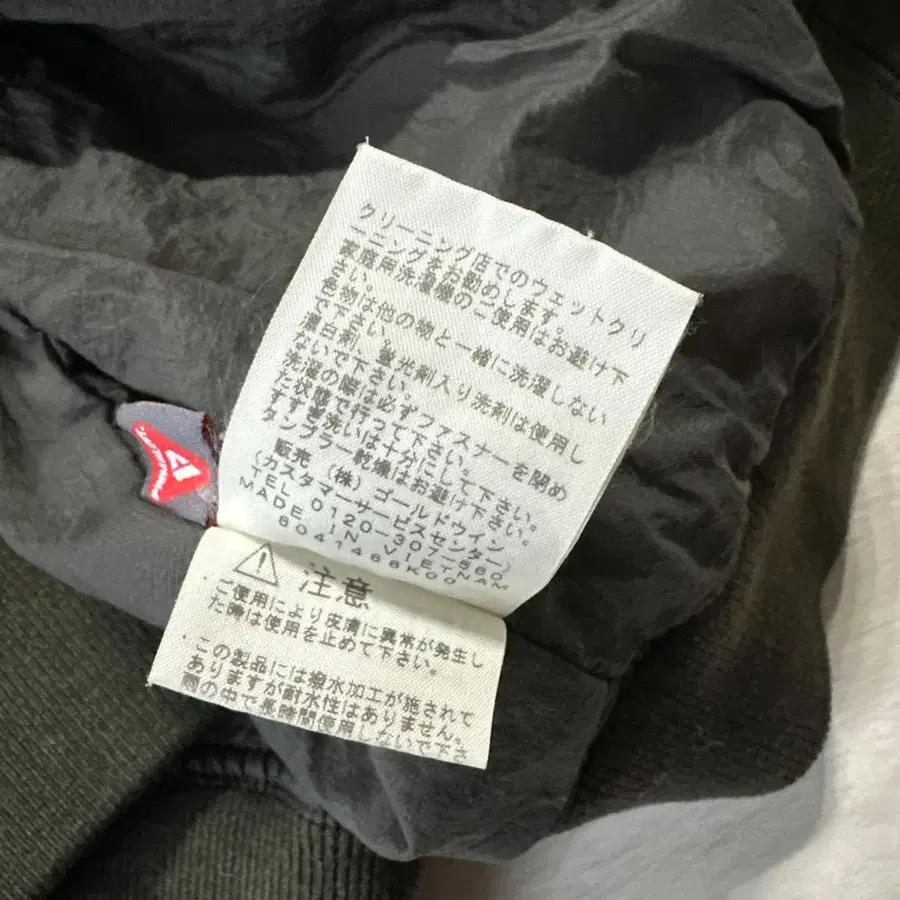 クリーニング店でのウェットクリ
ーニングをお勧めします。
家庭用洗濯機のご使用はお避け下
さい。
色物は他の物と一緒に洗濯しない
で下さい。
漂白剤、蛍光剤入り洗剤は使用し
ないで下さい。
洗濯の際は必ずファスナーを閉め
た状態で行って下さい。
すすぎ洗いは十分にして下さい。
タンブラー乾燥はお避け下さい。
販売 (株) ゴールドウイン
(カスタマーサービスセンター)
TEL 0120-307-560
MADE IN VIETNAM
注意
ご使用により皮膚に異常が発生し
た時は使用を止めて下さい。
この製品には撥水加工が施されて
ありますが耐水性はありません。
雨の中で長時間使用しないで下さ